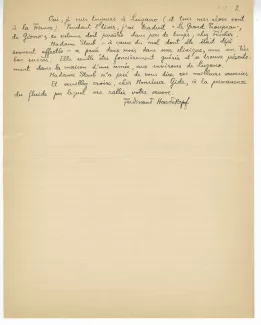 2
Oui, je suis toujours à Lugano (et tous mes voeux vont
à la France). Pendant l'hiver, j'ai traduit "le Grand Troupeau",
de Giono; ce volume doit paraître dans peu de temps, chez Fischer.
Madame Staub - à cause du mal dont elle était déjà
souvent affectée - a passé deux mois dans une clinique, avec un très
bon succès. Elle semble être foncièrement guérie et se trouve présente-
ment dans la maison d'une amie, aux environs de Lugano.
Madame Staub m'a prié de vous dire ses meilleurs souvenirs.
Et veuillez croire, cher Monsieur Gide, à la permanence
du fluide par lequel me rallie votre oeuvre.
Ferdinand Hardekopf